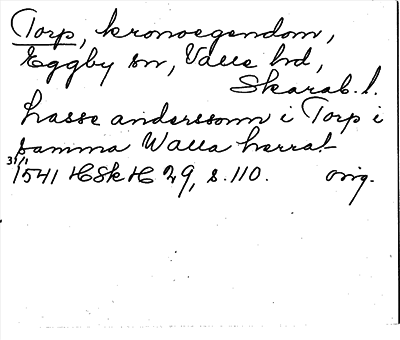 Torp, kronoegendom,
Eggby sn, Valle hd,
Skarab. l.
Lasse anderssonn i Torp i
samma Walla herrat
31/1 1541 HSkH 29, s. 110. orig.